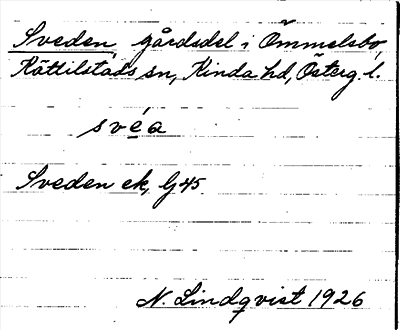 Sveden, gårdsdel i Ömmelsbo,
Kättilstads sn, Kinda hd, Österg. l.
svéa
Sveden ek, G 45
N. Lindqvist 1926